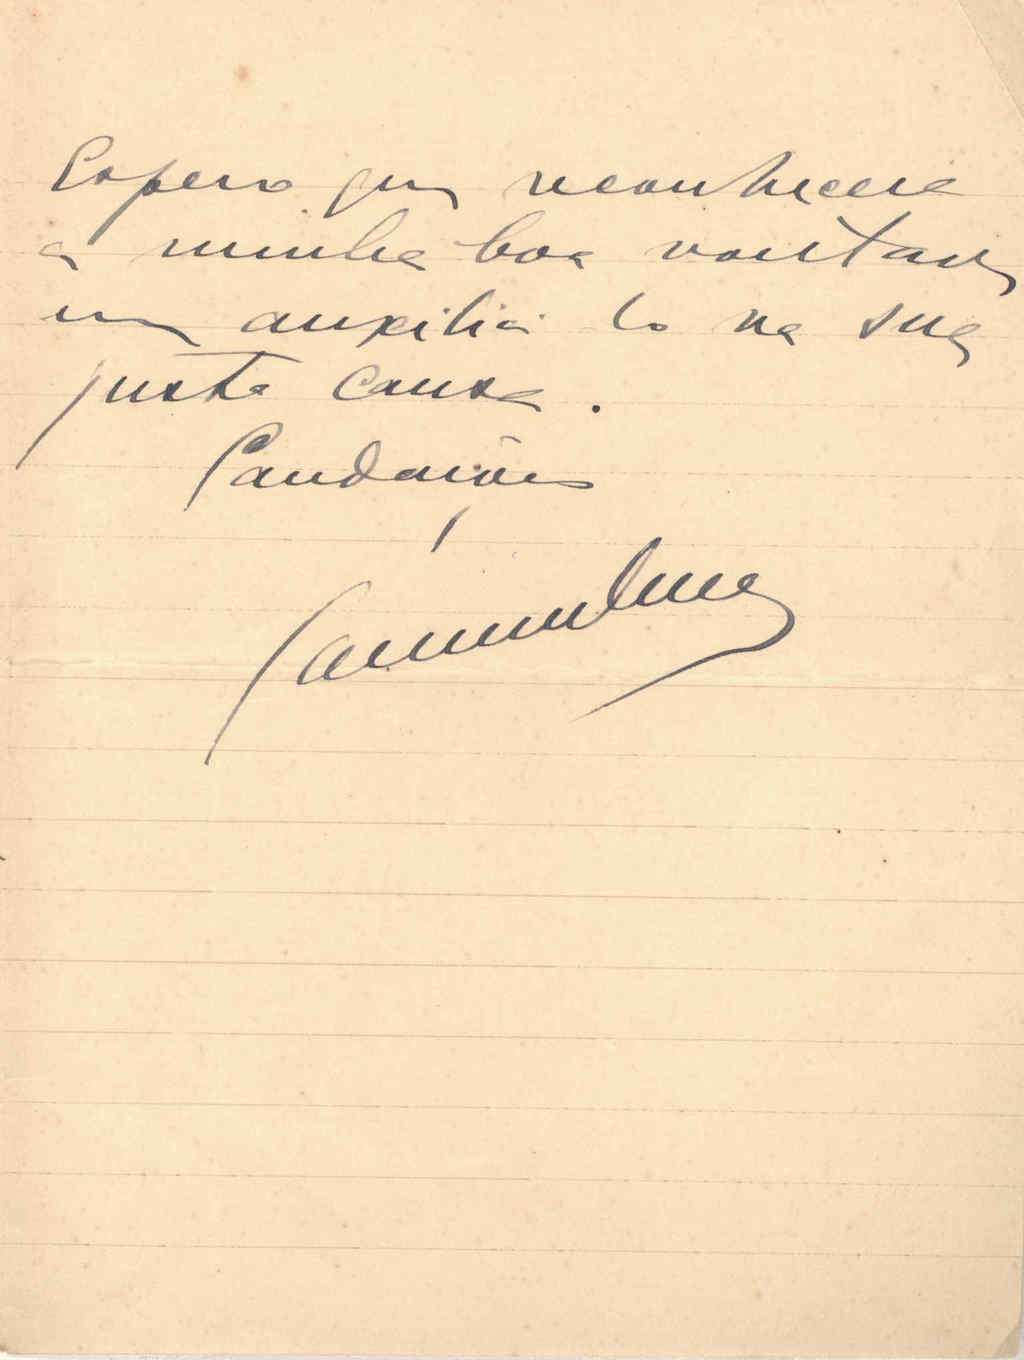 Espero que reconhecera
a minha boa vontade
em auxilia lo na sua
justa causa.
Saudações